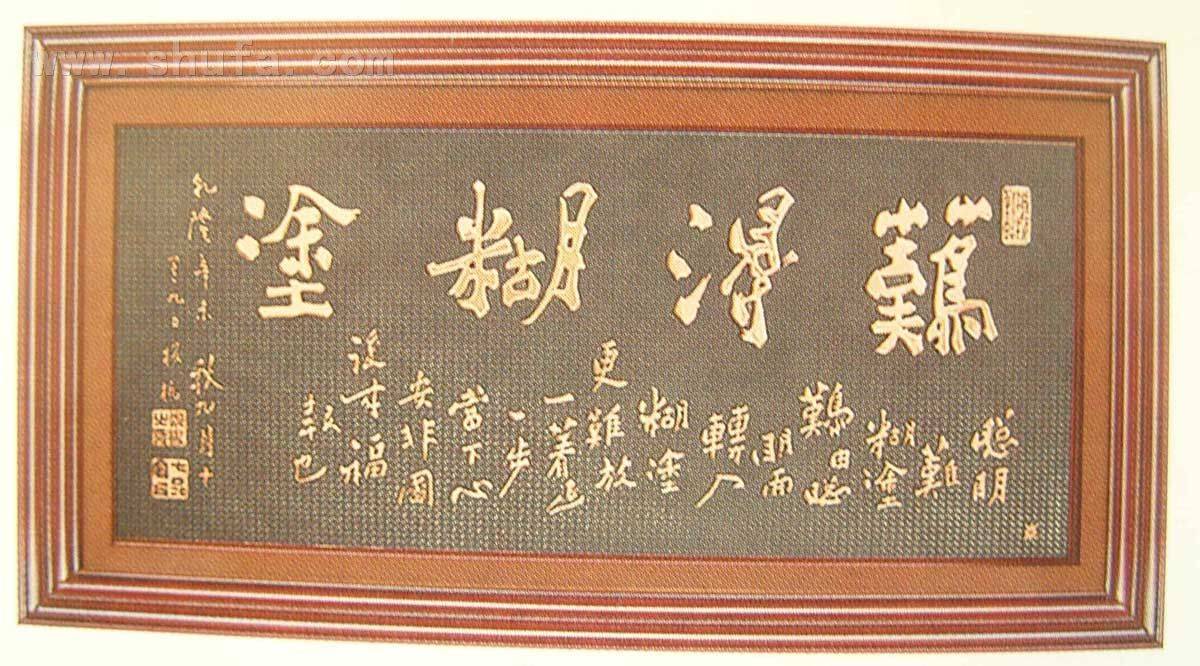 www.shufa.com
難得糊塗
聰明
難
糊塗
難由聰
明而
轉入
糊塗
更難放
一著退
一步
當下心
安非圖
後來福
報也
乾隆辛未秋九月十
有九日板橋